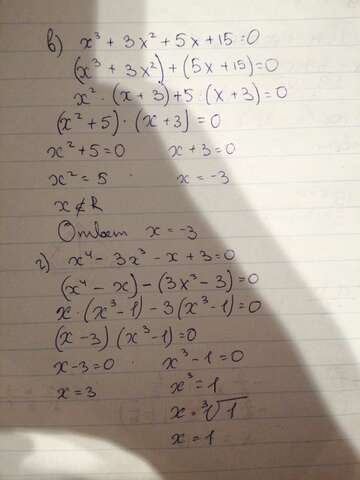 в) x³ + 3x² + 5x + 15 = 0
(x³ + 3x²) + (5x + 15) = 0
x² · (x + 3) + 5 · (x + 3) = 0
(x² + 5) · (x + 3) = 0
x² + 5 = 0 x + 3 = 0
x² = 5 x = -3
x ∉ R
Ответ x = -3
г) x⁴ - 3x³ - x + 3 = 0
(x⁴ - x) - (3x³ - 3) = 0
x · (x³ - 1) - 3(x³ - 1) = 0
(x - 3) (x³ - 1) = 0
x - 3 = 0 x³ - 1 = 0
x = 3 x³ = 1
x = ³√1
x = 1